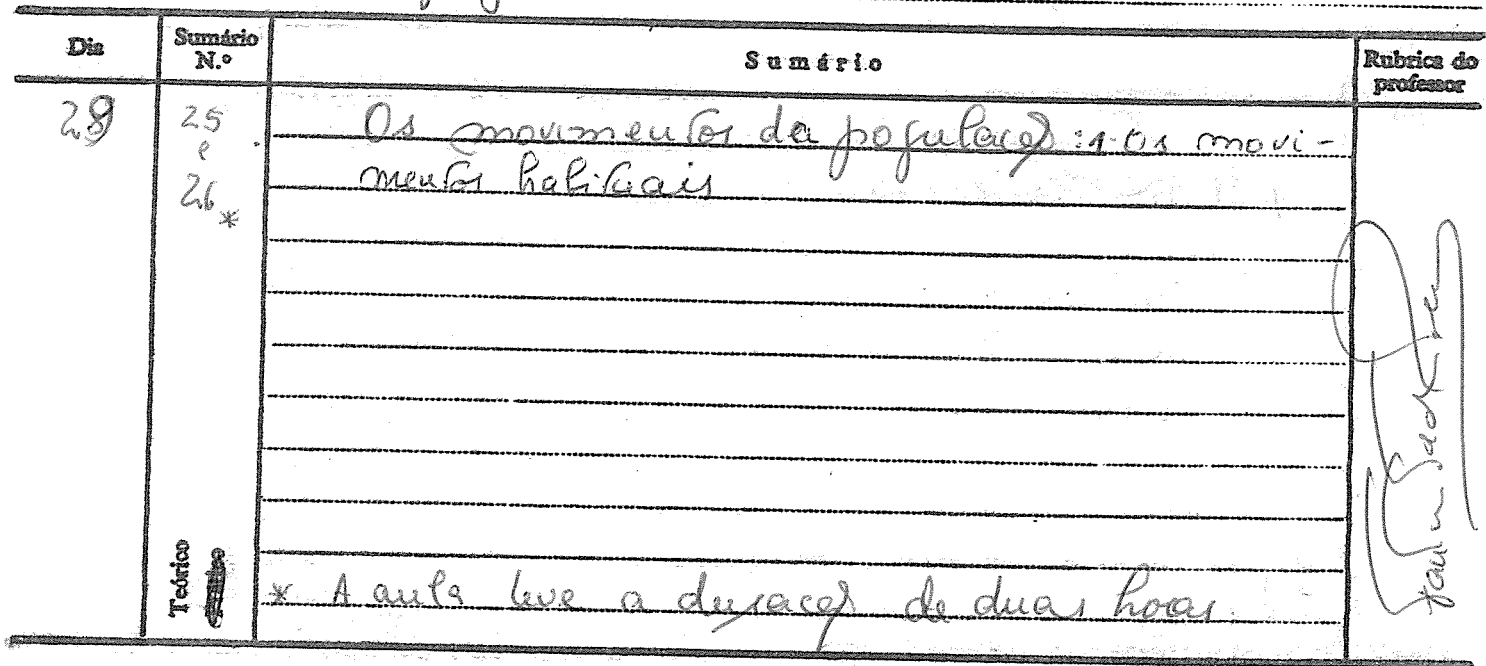 Dia
Sumário N.º
Sumário
Rubrica do professor
29
25 e 26 *
Os movimentos da população: 1. Os movi-
mentos habituais
Teórico
* A aula teve a duração de duas horas.